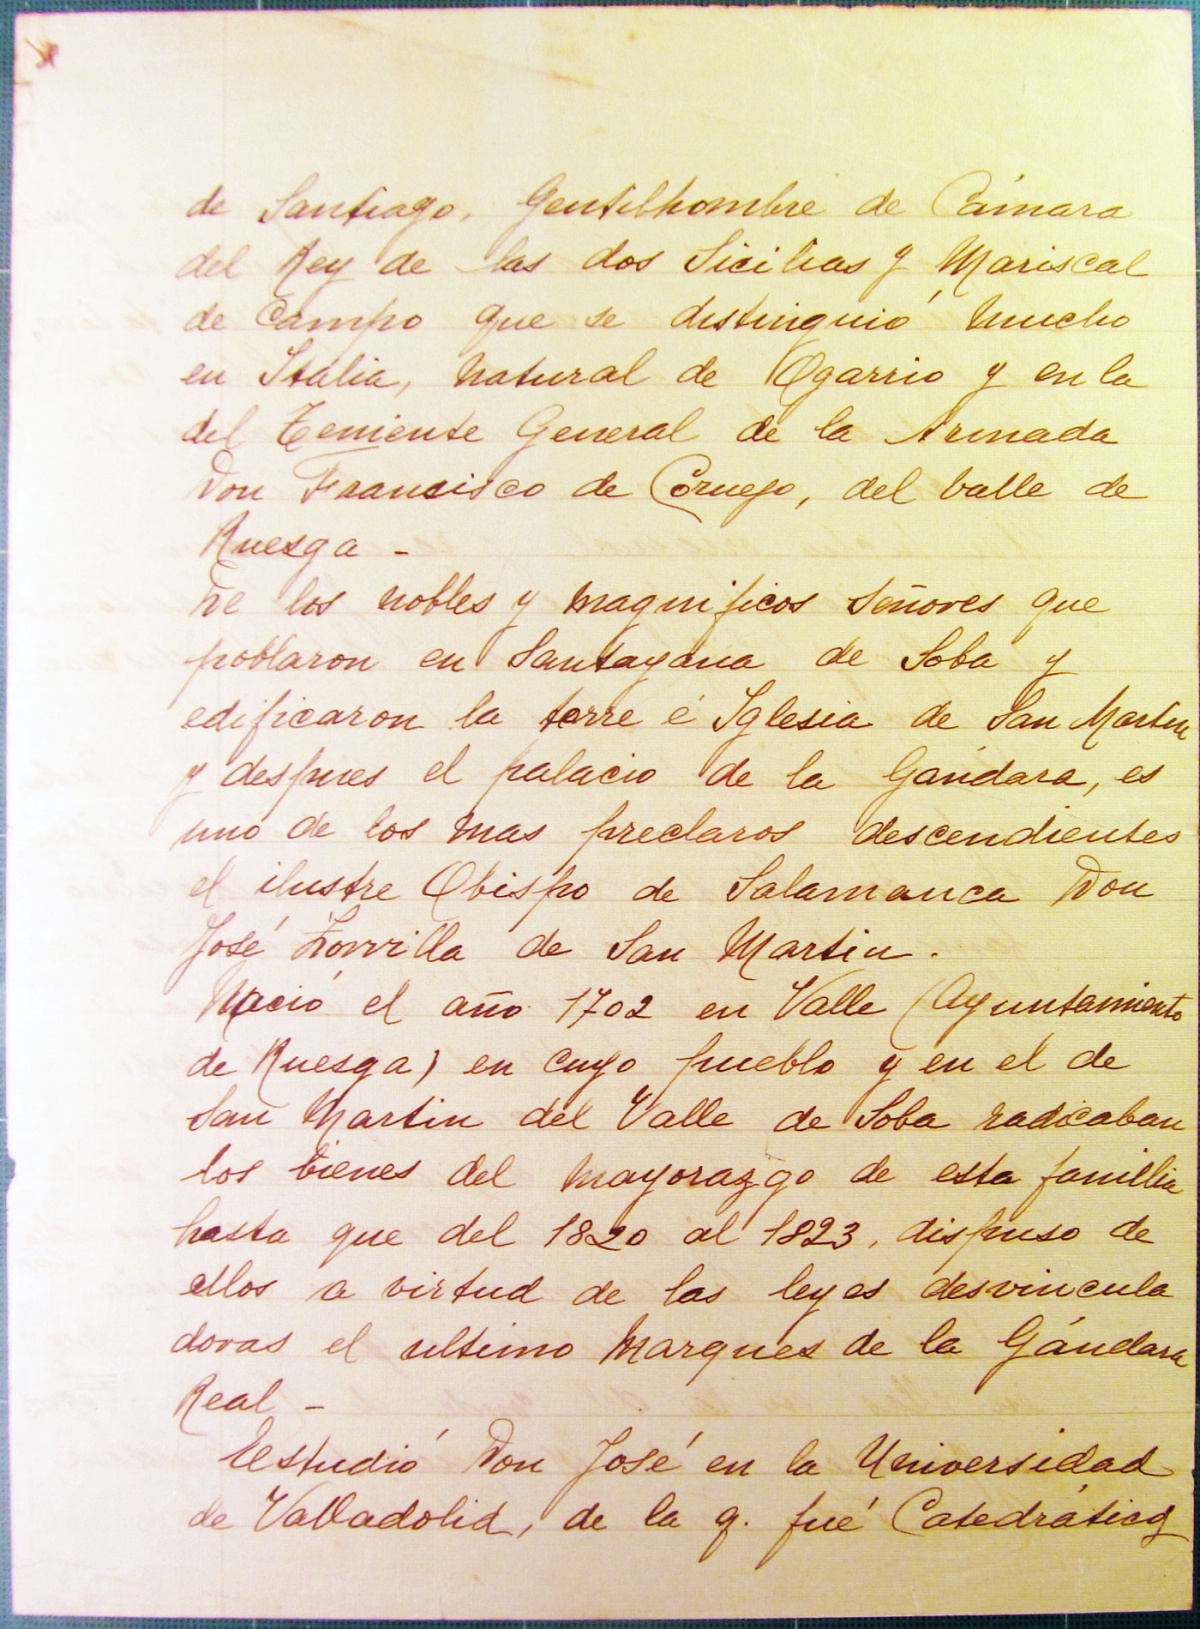 de Santiago, Gentilhombre de Cámara
del Rey de las dos Sicilias y Mariscal
de Campo que se distinguió mucho
en Italia, natural de Ogarrio y en la
del Teniente General de la Armada
Don Francisco de Cornejo, del balle de
Ruesga -
De los nobles y magnificos señores que
poblaron en Santayana de Soba y
edificaron la torre é Iglesia de San Martin
y despues el palacio de la Gándara, es
uno de los mas preclaros descendientes
el ilustre Obispo de Salamanca Don
José Zorrilla de San Martin.
Nació el año 1702 en Valle (Ayuntamiento
de Ruesga) en cuyo pueblo y en el de
San Martin del Valle de Soba radicaban
los bienes del mayorazgo de esta famillia
hasta que del 1820 al 1823, dispuso de
ellos a virtud de las leyes desvincula
doras el ultimo Marques de la Gándara
Real -
Estudió Don José en la Universidad
de Valladolid, de la q. fué Catedrático